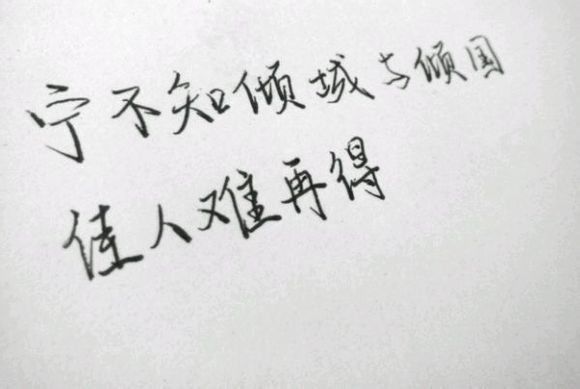 宁不知倾城与倾国
佳人难再得